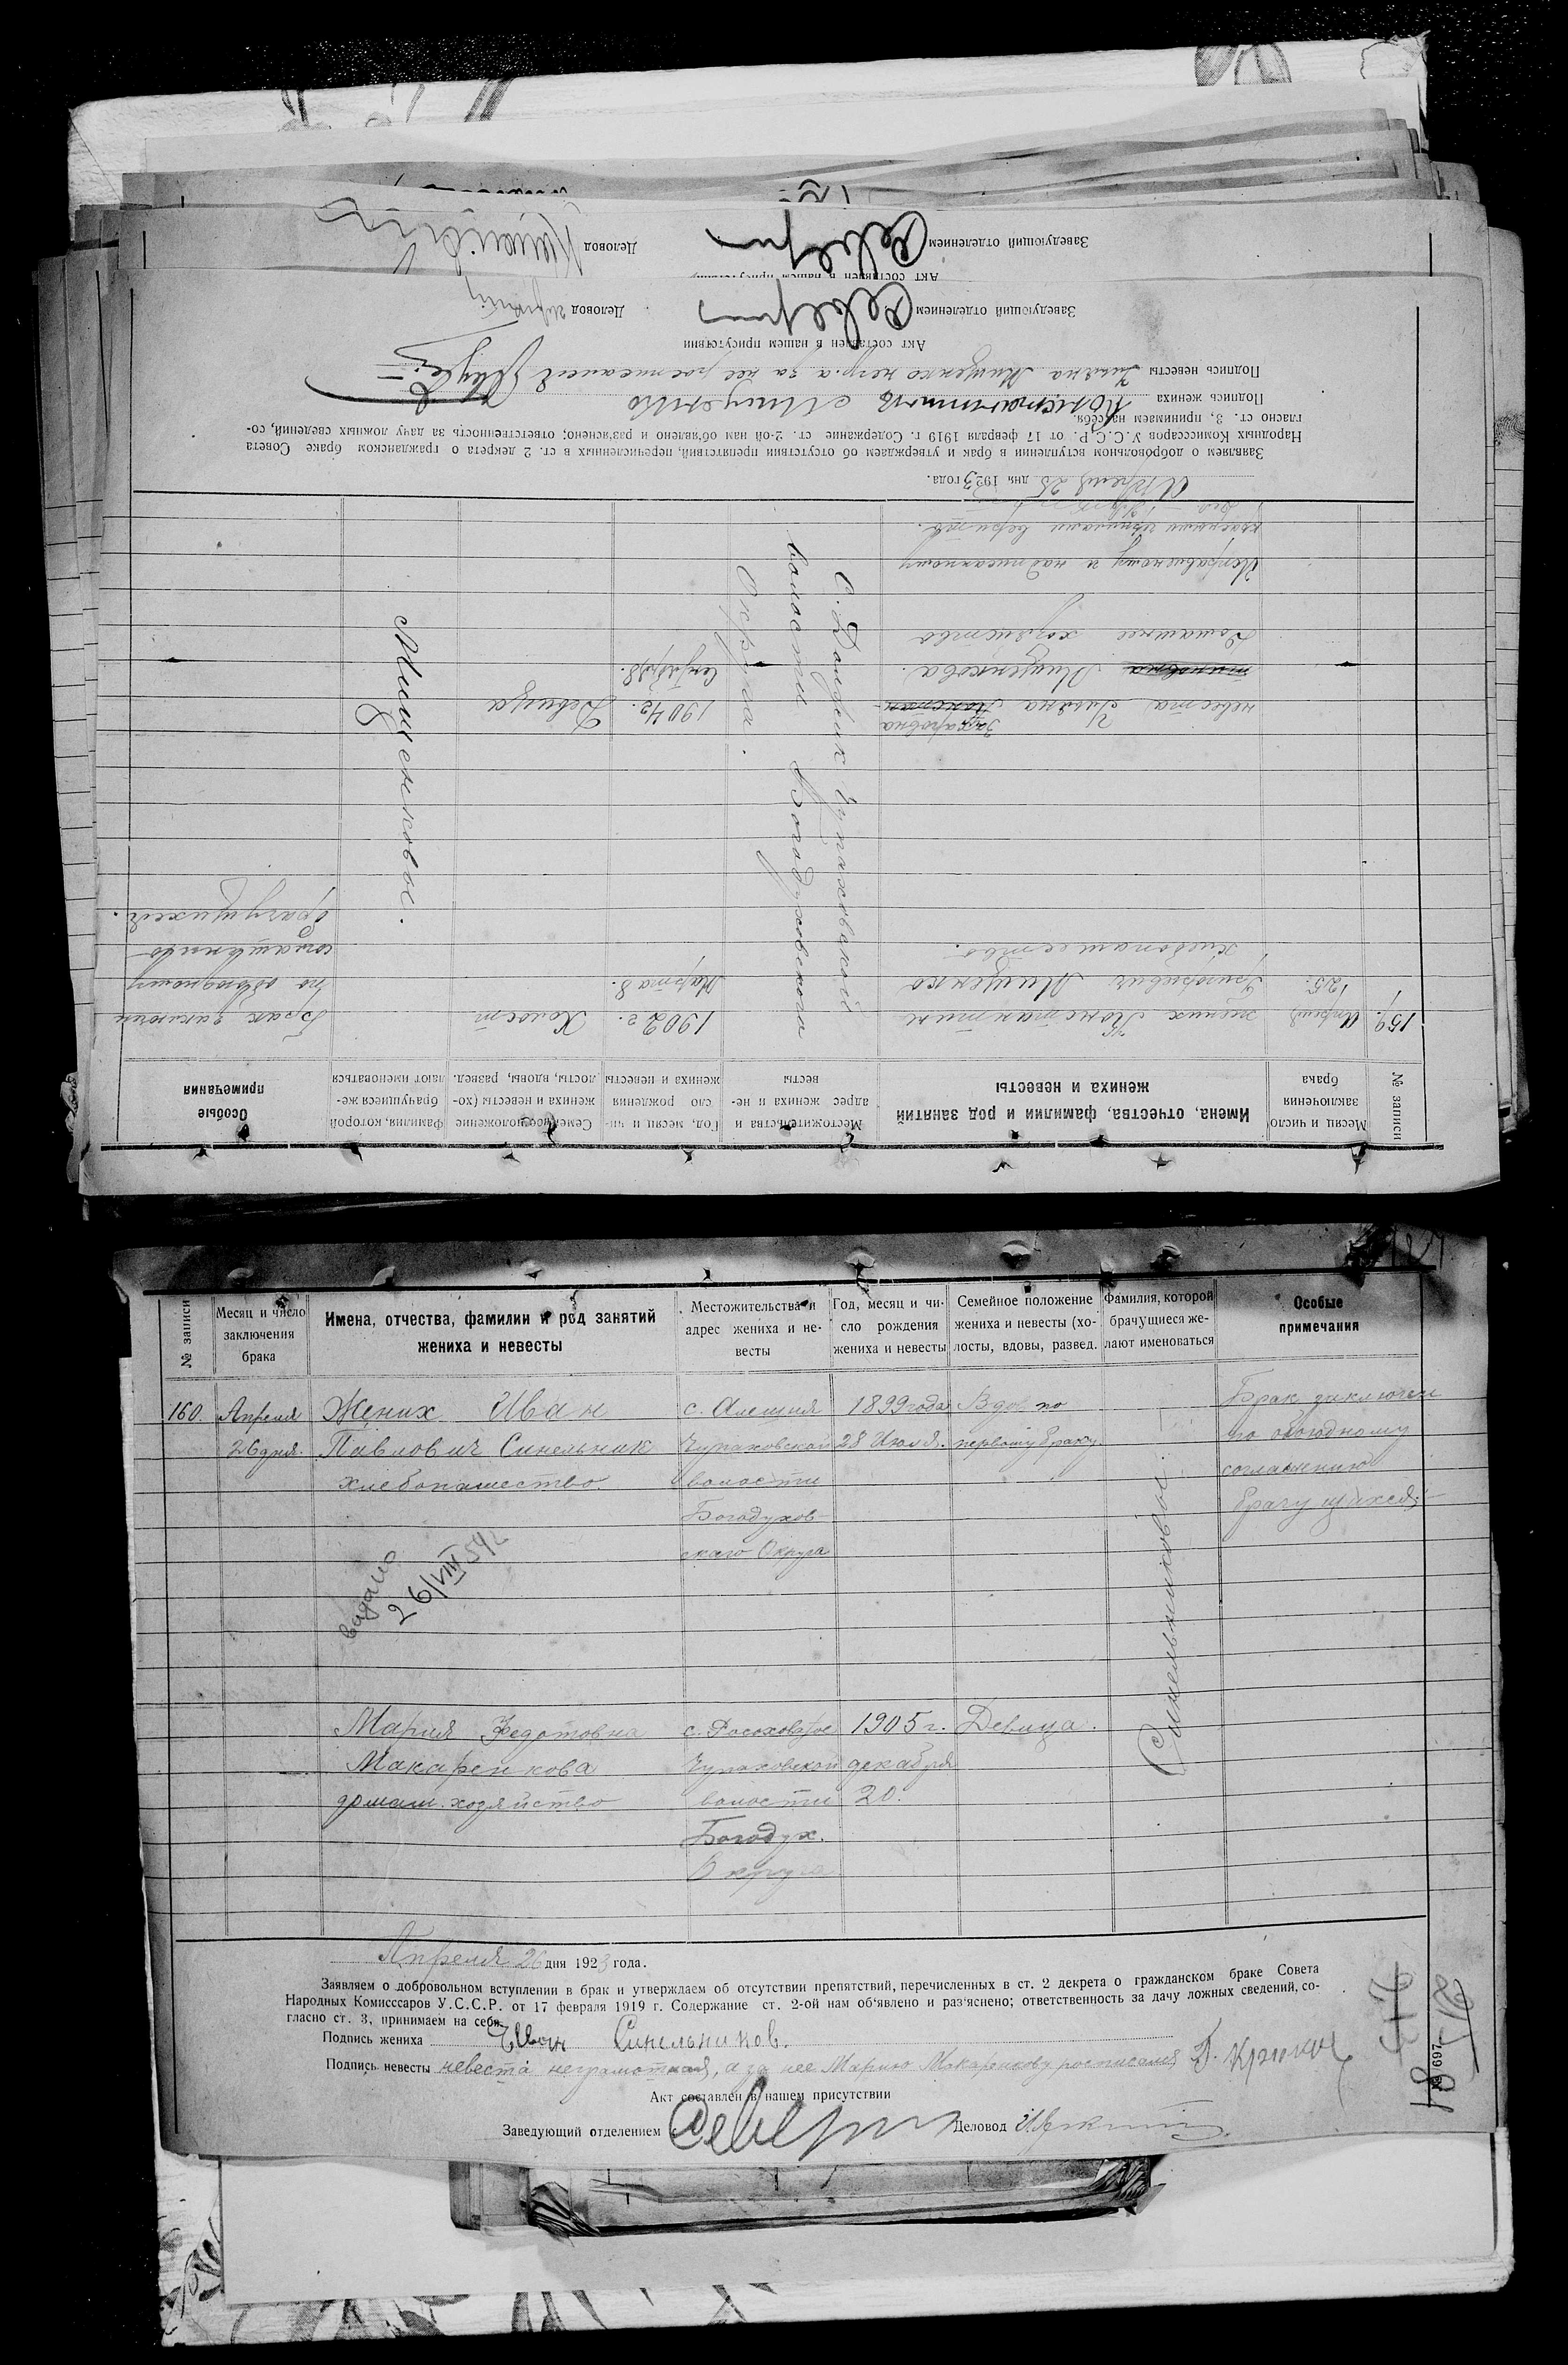 Заведующий отделением
Деловод
Акт составлен в нашем присутствии
№ записи
Месяц и число заключения брака
Имена, отчества, фамилии и род занятий жениха и невесты
Местожительства и адрес жениха и невесты
Год, месяц и число рождения жениха и невесты
Семейное положение жениха и невесты (холосты, вдовы, развед.
Фамилия, которой брачущиеся желают именоваться
Особые примечания
159.
Апреля
25.
жених Константин
Григорьевич Мищенко
хлебопашество.
с. Дойфик Чупаховской
волости Богодуховского
Округа.
1902 г.
Марта 8.
Холост
Мищенковое.
Брак заключен
по обоюдному
соглашению
брачущихся.
Захаровна
невеста Ульяна Констан-
тиновна Мищенкова.
Домашнее хозяйство
1904 г.
Сентября 8.
Девица
Исправленому и надписанному
красными чернилами верить.
Апреля 25 дня 1923 года.
Заявляем о добровольном вступлении в брак и утверждаем об отсутствии препятствий, перечисленных в ст. 2 декрета о гражданском браке Совета
Народных Комиссаров У.С.С.Р. от 17 февраля 1919 г. Содержание ст. 2-ой нам об'явлено и раз'яснено; ответственность за дачу ложных сведений, со-
гласно ст. 3, принимаем на себя.
Подпись жениха Константин Мищенко
Подпись невесты Ульяна Мищенко негр. а за нее росписался
Акт составлен в нашем присутствии
Заведующий отделением
Деловод
№ записи
Месяц и число
заключения
брака
Имена, отчества, фамилии и род занятий
жениха и невесты
Местожительства и
адрес жениха и не-
весты
Год, месяц и чи-
сло рождения
жениха и невесты
Семейное положение
жениха и невесты (хо-
лосты, вдовы, развед.
Фамилия, которой
брачущиеся же-
лают именоваться
Особые
примечания
160.
Апреля
26 дня.
Жених Иван
Павлович Синельник
хлебопашество.
с. Алешня
Чупаховской
волости
Богодухов-
скаго Округа
1899 года
28 Июля.
Вдов по
первому браку
Синельниковое.
Брак заключен
по обоюдному
соглашению
брачущихся:
видано
26/VIII 54 г.
Мария Федотовна
Макаренкова
домаш. хозяйство
с. Росоховатое
Чупаховской
волости
Богодух.
Округа
1905 г.
декабря
20.
Девица.
Апреля 26 дня 1923 года.
Заявляем о добровольном вступлении в брак и утверждаем об отсутствии препятствий, перечисленных в ст. 2 декрета о гражданском браке Совета
Народных Комисссаров У.С.С.Р. от 17 февраля 1919 г. Содержание ст. 2-ой нам об'явлено и раз'яснено; ответственность за дачу ложных сведений, со-
гласно ст. 3, принимаем на себя.
Подпись жениха Иван Синельников.
Подпись невесты невеста неграмотная, а за нее Марию Макаренкову росписался
Акт составлен в нашем присутствии
Заведующий отделением
Деловод
697